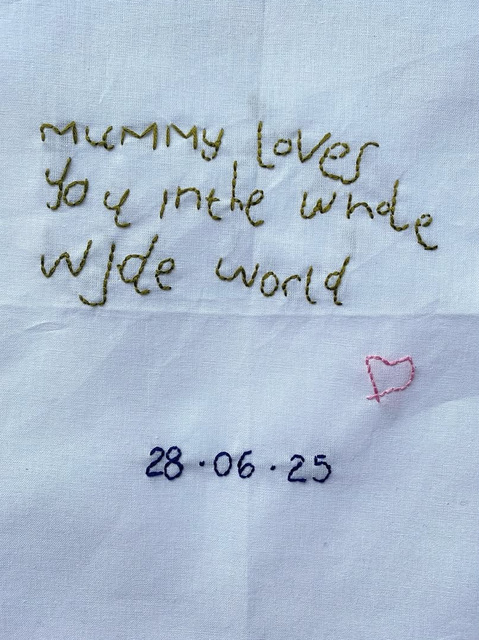 mummy loves
you in the whole
wide world
28.06.25